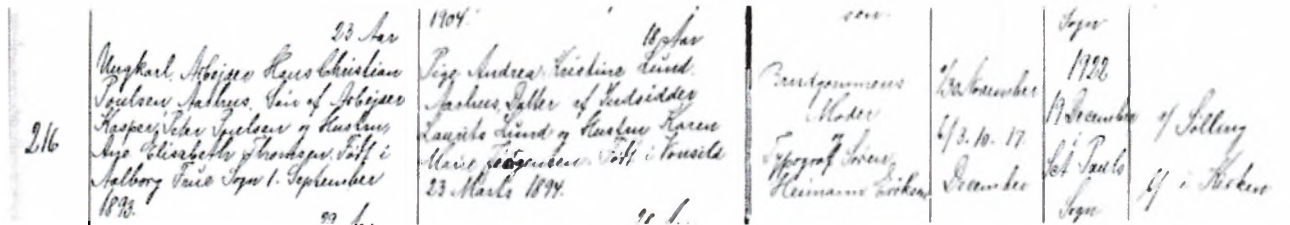 1904.
sen.
Sogn
23 Aar
18 Aar
1922
216
Ungkarl, Arbejder Hans Christian
Poulsen, Aarhus. Søn af Arbejder
Kasper Peter Poulsen og Hustru,
Ane Elisabeth Thomsen. Født i
Aalborg Frue Sogn 1. September
1893.
Pige Andrea Kristine Lund.
Aarhus, Datter af Indsidder
Laurits Lund og Hustru Karen
Marie Jørgensen. Født i
23 Marts 1894.
Brudgommens
Moder
Typograf Søren
Heimann
a/ 30 November
b/ 3. 10. 17.
December
19 December
i
Sct Pauls
Sogn
a/ Sølling
b/ i Kirken